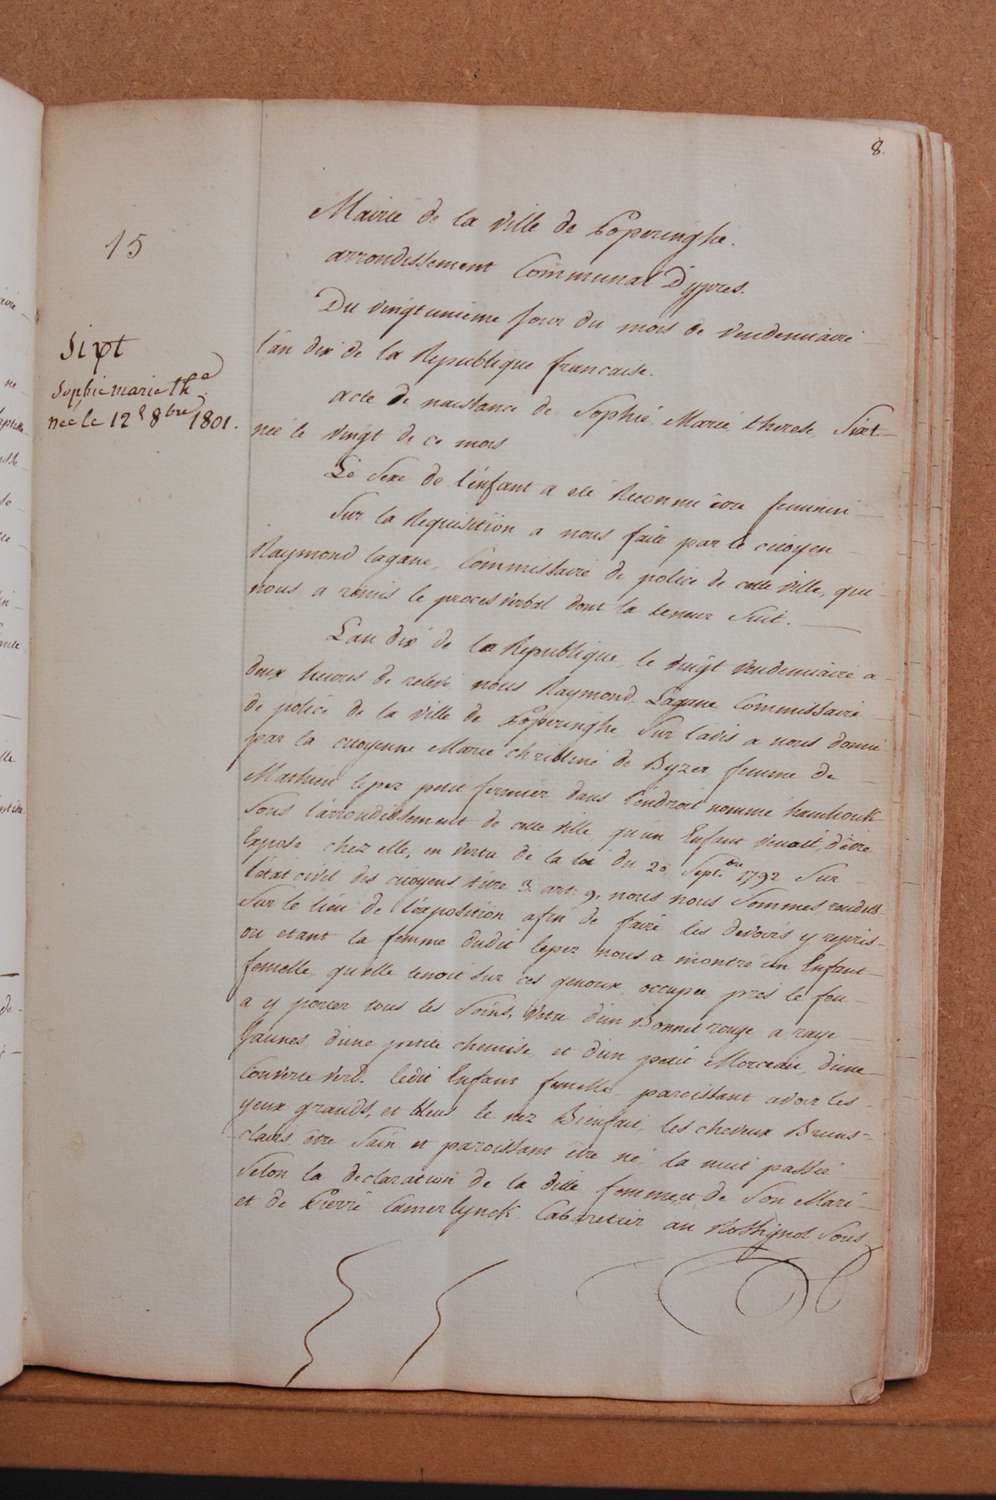 8.
15
Sixt
Sophie marie th.e
née le 12 8bre 1801.
Mairie de la ville de Poperinghe.
arrondissement Communal D'ypres.
Du vingt unieme jour du mois de vendemiaire
l'an dix de la Republique francaise.
acte de naissance de Sophie, Marie therese, Sixt
née le vingt de ce mois
Le Sexe de l'enfant a eté Reconnu être feminin
Sur la Requisition a nous faite par le citoyen
Raymond Lagane, Commissaire de police de cette ville, qui
nous a remis le proces verbal dont la teneur Suit.
L'an dix de la Republique, le vingt vendemiaire a
deux heures de relevé, nous Raymond Lagane Commissaire
de police de la ville de Poperinghe Sur l'avis a nous donné
par la citoyenne Marie Christine de Byzer femme de
Mathieu lepez petit fermier dans l'endroit nommé hamhouk
Sous l'arrondissement de cette ville, qu'un Enfant venait d'être
Exposé chez elle, en vertu de la loi du 20 Septbre 1792 Sur
l'état civil des citoyens titre 3 art 9, nous nous Sommes rendus
Sur le lieu de l'exposition afin de faire les devoirs y repris
ou etant la femme dudit lepez nous a montré un Enfant
femelle qu'elle tenoit Sur ces genoux occupée près le feu
a y porter tous les Soins, Vetu d'un Bonnet rouge a raye
Jaunes d'une petite chemise et d'un petit Morceau d'une
Couverte verd. ledit Enfant femelle paroissant avoir les
yeux grands, et bleus le nez Bienfait, les cheveux Bruns
clairs être Sain et paroissant être né la nuit passée
Selon la declaration de la dite femme et de Son Mari
et de Pierre Camerlynck Cabaretier au Rossignol Sous